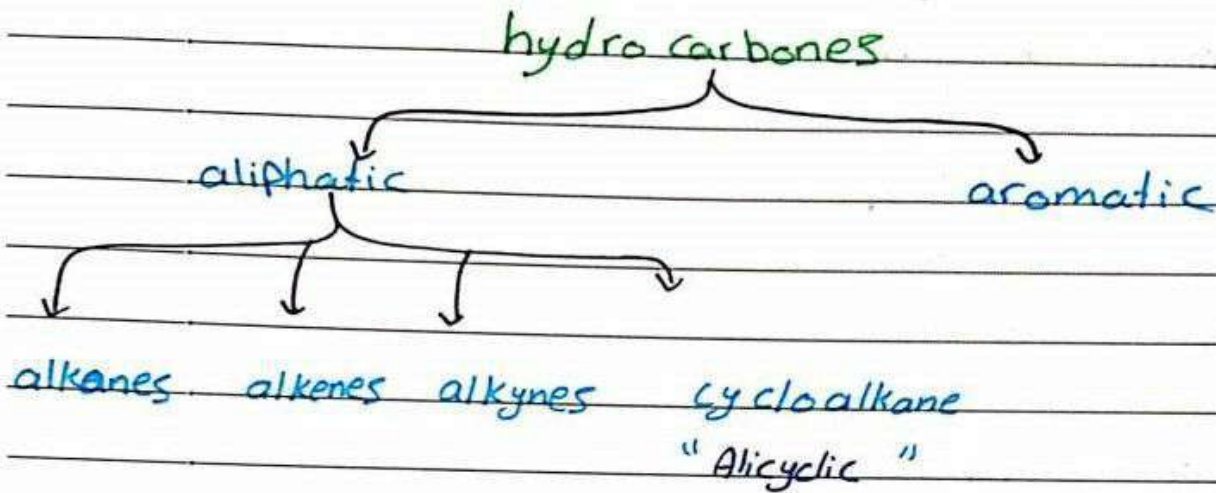 hydro carbones
aliphatic aromatic
alkanes alkenes alkynes cycloalkane
"Alicyclic"